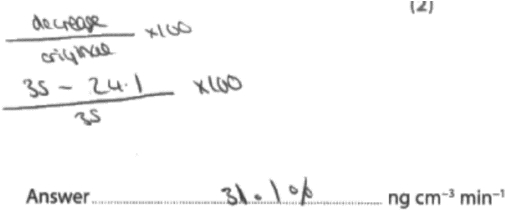 (2)
decrease
original
×100
35 - 24.1
35
×100
Answer 31.1% ng cm⁻³ min⁻¹